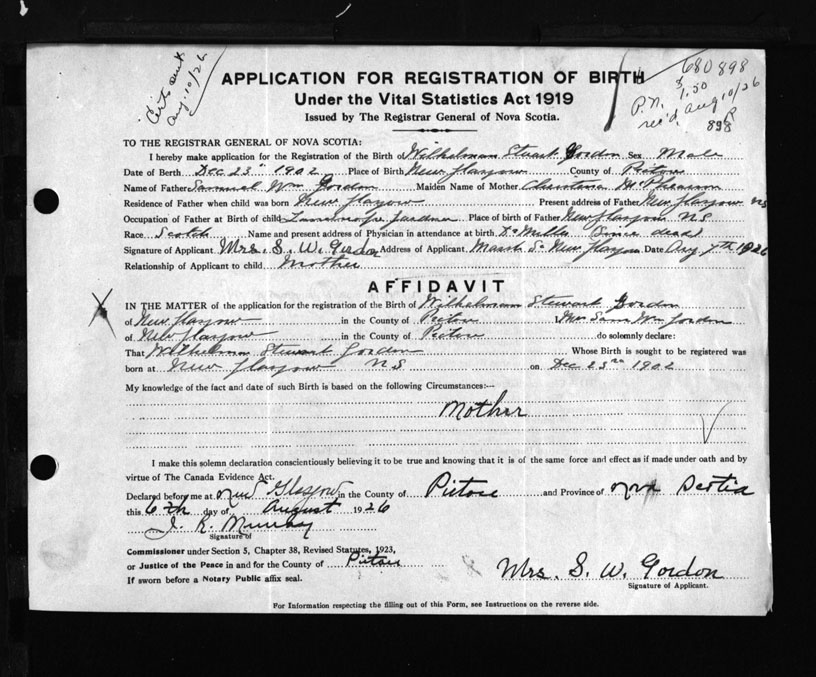 Certs sent
Aug. 10/26
680898
$1.50
P.N.
rec'd. Aug 10/26
898
APPLICATION FOR REGISTRATION OF BIRTH
Under the Vital Statistics Act 1919
Issued by The Registrar General of Nova Scotia.
TO THE REGISTRAR GENERAL OF NOVA SCOTIA:
I hereby make application for the Registration of the Birth of Wilhelman Stuart Gordon Sex Male
Date of Birth Dec 23 1902 Place of Birth New Glasgow County of Pictou
Name of Father Samuel Wm Gordon Maiden Name of Mother Christina McPherson
Residence of Father when child was born New Glasgow Present address of Father New Glasgow NS
Occupation of Father at Birth of child Place of birth of Father New Glasgow NS
Race Scotch Name and present address of Physician in attendance at birth Dr Miller Since dead
Signature of Applicant Mrs. S. W. Gordon Address of Applicant Marsh St New Glasgow Date Aug 7th 1926
Relationship of Applicant to child Mother
AFFIDAVIT
IN THE MATTER of the application for the registration of the Birth of Wilhelman Stewart Gordon
of New Glasgow in the County of Pictou I Mrs Sam Wm Gordon
of New Glasgow in the County of Pictou do solemnly declare:
That Wilhelman Stewart Gordon Whose Birth is sought to be registered was
born at New Glasgow NS on Dec 23rd 1902
My knowledge of the fact and date of such Birth is based on the following Circumstances:—
Mother
I make this solemn declaration conscientiously believing it to be true and knowing that it is of the same force and effect as if made under oath and by
virtue of The Canada Evidence Act.
Declared before me at New Glasgow in the County of Pictou and Province of Nova Scotia
this 6th day of August 1926
J. R. Murray
Signature of
Commissioner under Section 5, Chapter 38, Revised Statutes, 1923,
or Justice of the Peace in and for the County of Pictou
If sworn before a Notary Public affix seal.
Mrs. S. W. Gordon
Signature of Applicant.
For Information respecting the filling out of this Form, see Instructions on the reverse side.